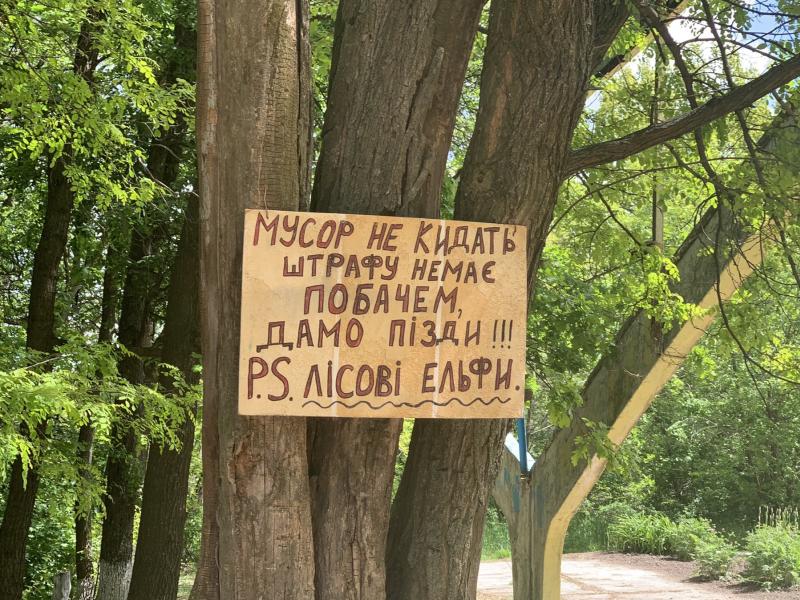 МУСОР НЕ КИДАТЬ
ШТРАФУ НЕМАЄ
ПОБАЧЕМ,
ДАМО ПІЗДИ!!!
P.S. ЛІСОВІ ЕЛЬФИ.